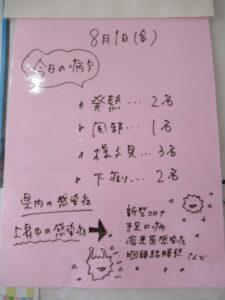 8月1日(金)
今日の病欠
発熱…2名
風邪…1名
様子見…3名
下痢…2名
県内の感染症
上昇中の感染症
・新型コロナ
・手足口病
・溶連菌感染症
・咽頭結膜熱 など